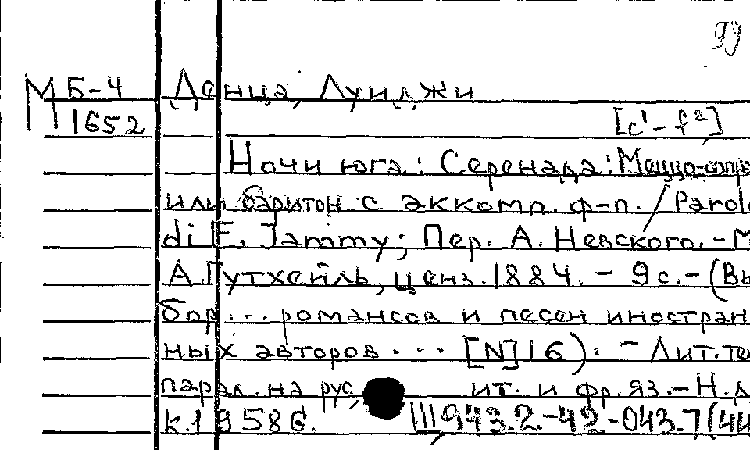 99
М Б-4 Данца, Луиджи
1652 [c¹-f²]
Ночи юга: Серенада: Меццо-сопр
или баритон с аккомп. ф-п. / Parole
di E. Tammy; Пер. А. Невского. - М
А. Гутхейль, ценз. 1884. - 9 с. - (Вы
бор... романсов и песен иностран
ных авторов... [N]16). - Лит. те
парал. на рус, ит. и фр. яз. - Н.д
k.19586. Ш943.2-42-043.7(4И